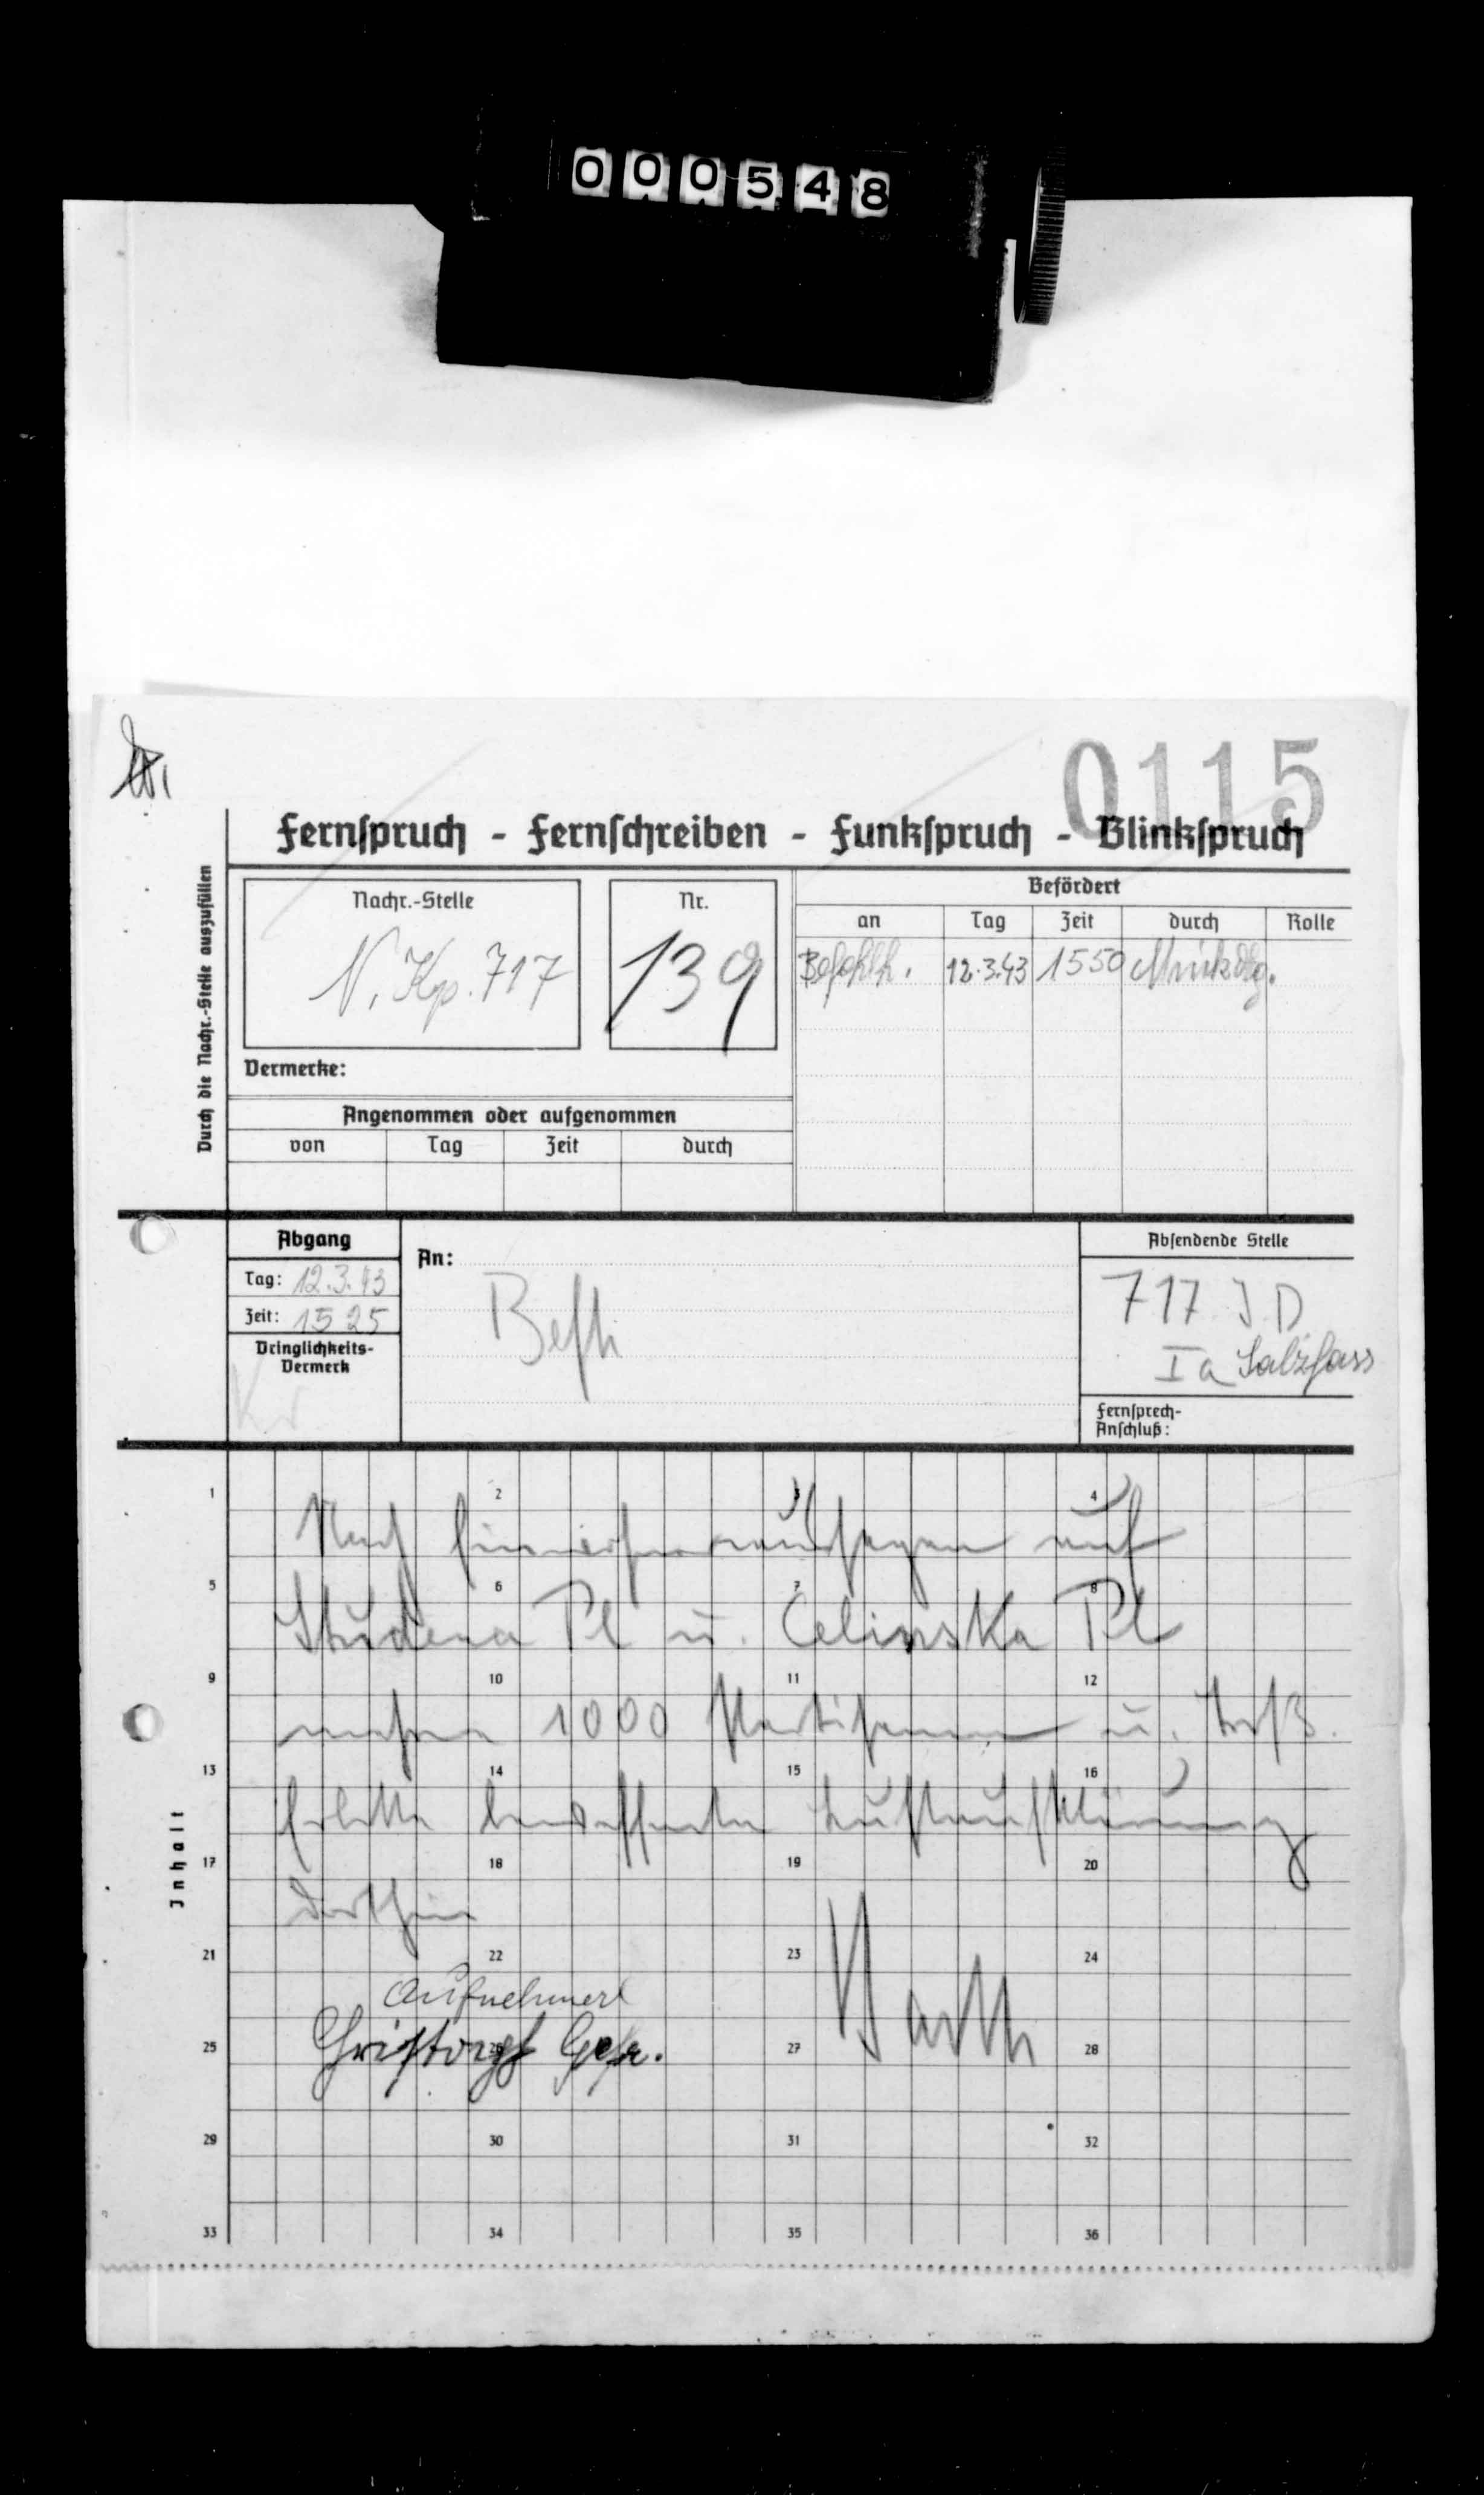 000548
0115
Fernspruch - Fernschreiben - Funkspruch - Blinkspruch
Durch die Nachr.-Stelle auszufüllen
Nachr.-Stelle
N. Kp. 717
Nr.
139
Befördert
an Tag Zeit durch Rolle
12.3.43 1550
Vermerke:
Angenommen oder aufgenommen
von Tag Zeit durch
Abgang
Tag: 12.3.43
Zeit: 1525
Dringlichkeits-
Vermerk
Kr
An:
Befh
Absendende Stelle
717 J.D
Ia Salzfass
Fernsprech-
Anschluß:
Inhalt
1 2 3 4
Nach auf
5 6 7 8
Studena Pl u. Celinska Pl
9 10 11 12
1000 Partisanen u. Troß.
13 14 15 16
Erbitte bewaffnete Luftaufklärung
17 18 19 20
dorthin
21 22 23 24
Aufnehmer
25 26 27 28
Gefr.
29 30 31 32
33 34 35 36